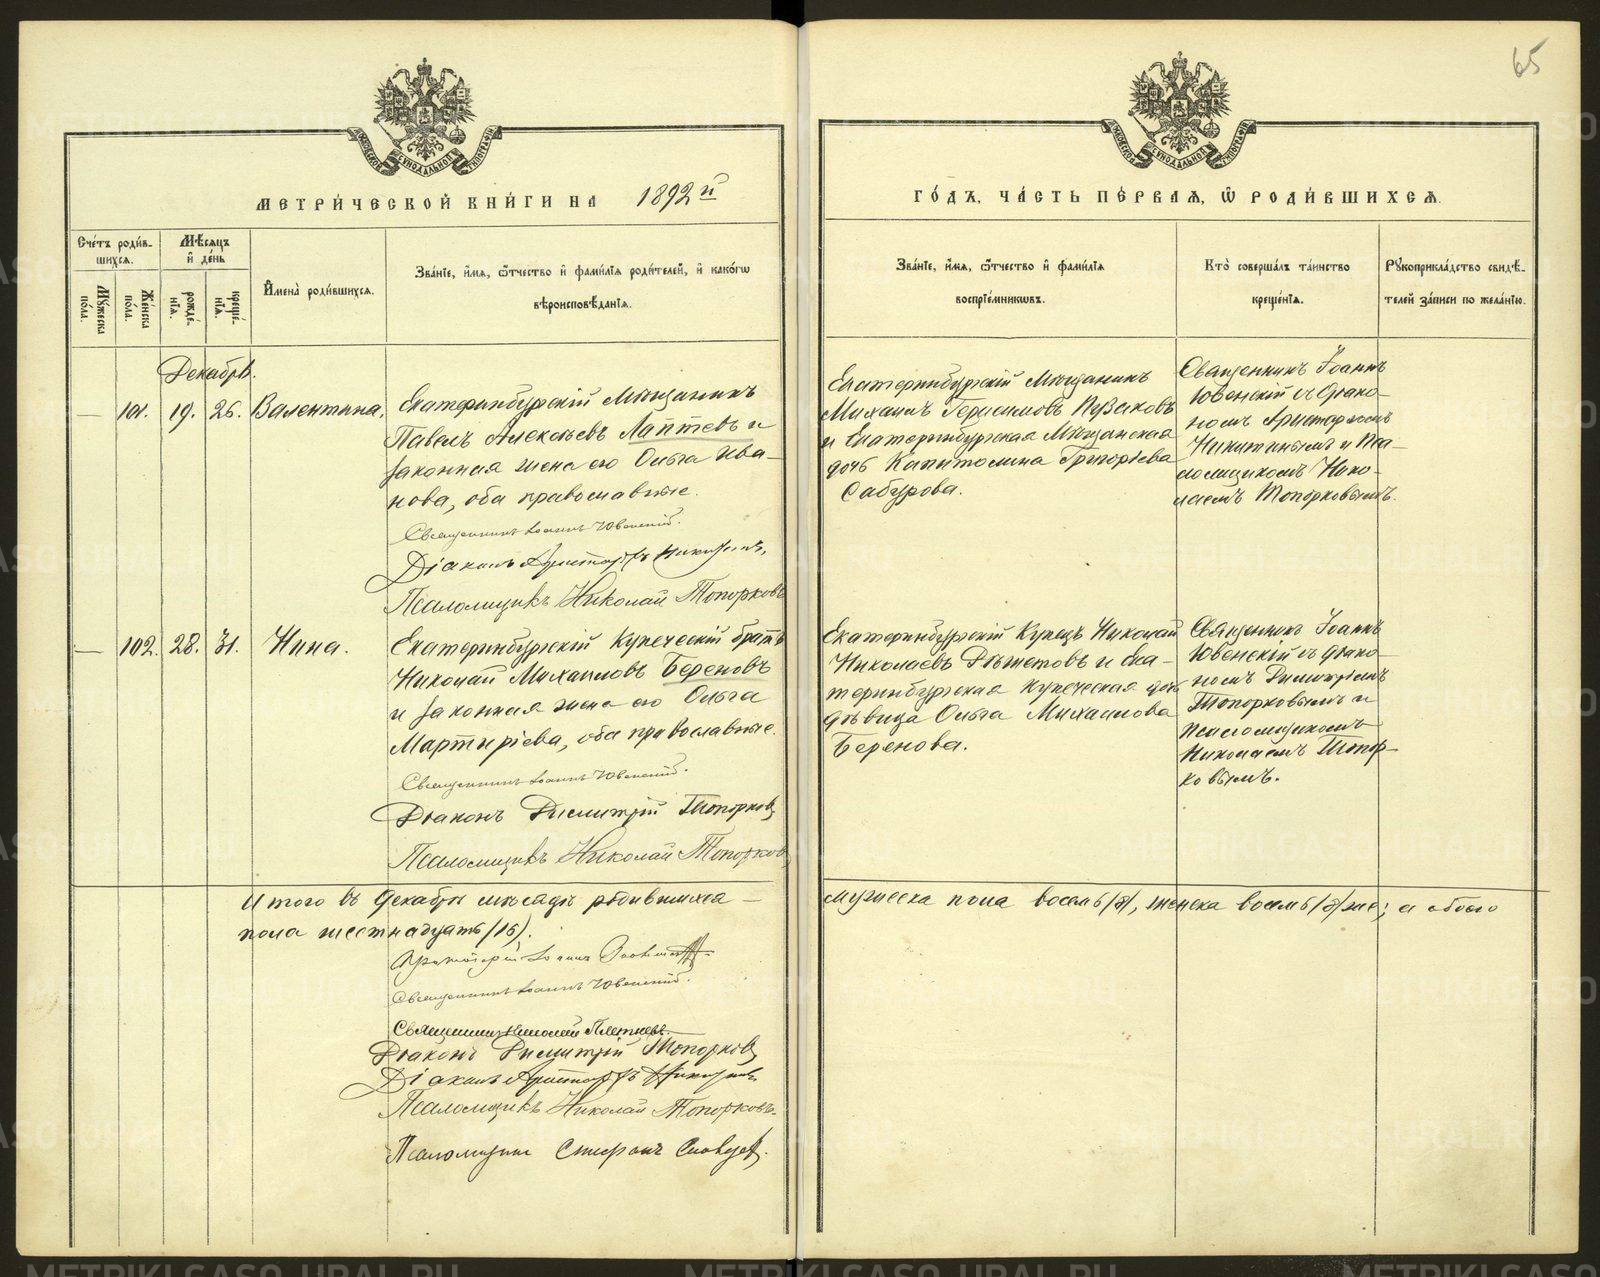 65
МЕТРИ́ЧЕСКОЙ КНИ́ГИ НА 1892 й
ГО́ДЪ, ЧА́СТЬ ПЕ́РВАЯ, Ѡ РОДИ́ВШИХСЯ.
Сче́тъ роди́в-
шихся.
Мѣсяцъ
и де́нь
Имена̀ роди́вшихся.
Зва́нїе, и́мя, ѻ́тчество и фами́лїя роди́телей, и како́гѡ
вѣроисповѣ́данїя.
Му́жеска
по́ла.
Же́нска
по́ла.
рожде́-
нїя.
креще́-
нїя.
Зва́нїе, и́мя, ѻ́тчество и фами́лїя
воспрїе́мникѡвъ.
Кто̀ соверша́лъ та́инство
креще́нїя.
Рꙋкоприкла́дство свидѣ́-
телей за́писи по жела́нїю.
Декабрь.
— 101. 19. 26. Валентина.
Екатеринбургскій Мѣщанинъ
Павелъ Алексѣевъ Лаптевъ и
законная жена его Ольга Ива-
нова, оба православные.
Священникъ Іоаннъ Ювенскій.
Діаконъ Аристархъ Никитинъ.
Псаломщикъ Николай Топорковъ
Екатеринбургскій Мѣщанинъ
Михаилъ Герасимовъ Пузаковъ
и Екатеринбургская Мѣщанская
дочь Капитолина Григорьева
Сабурова.
Священникъ Іоаннъ
Ювенскій съ Діако-
номъ Аристархомъ
Никитинымъ и Пса-
ломщикомъ Нико-
лаемъ Топорковымъ.
— 102. 28. 31. Нина.
Екатеринбургскій Купеческій братъ
Николай Михаиловъ Береновъ
и законная жена его Ольга
Мартиріева, оба православные.
Священникъ Іоаннъ Ювенскій.
Діаконъ Димитрій Топорковъ
Псаломщикъ Николай Топорков
Екатеринбургскій Купецъ Николай
Николаевъ Рѣшетовъ и Ека-
теринбургская Купеческая дочь
дѣвица Ольга Михаилова
Беренова.
Священникъ Іоаннъ
Ювенскій съ Діако-
номъ Димитріемъ
Топорковымъ и
псаломщикомъ
Николаемъ Топор-
ковымъ.
Итого въ Декабрѣ мѣсяцѣ родившихся —
мужеска пола восемь /8/, женска восемь /8/ же; а обоего
пола шестнадцать /16/.
Протоіерей Іоаннъ
Священникъ Іоаннъ Ювенскій.
Священникъ Николай Плетневъ
Діаконъ Димитрій Топорковъ
Діаконъ Аристархъ Никитинъ
Псаломщикъ Николай Топорковъ.
Псаломщикъ Стефанъ